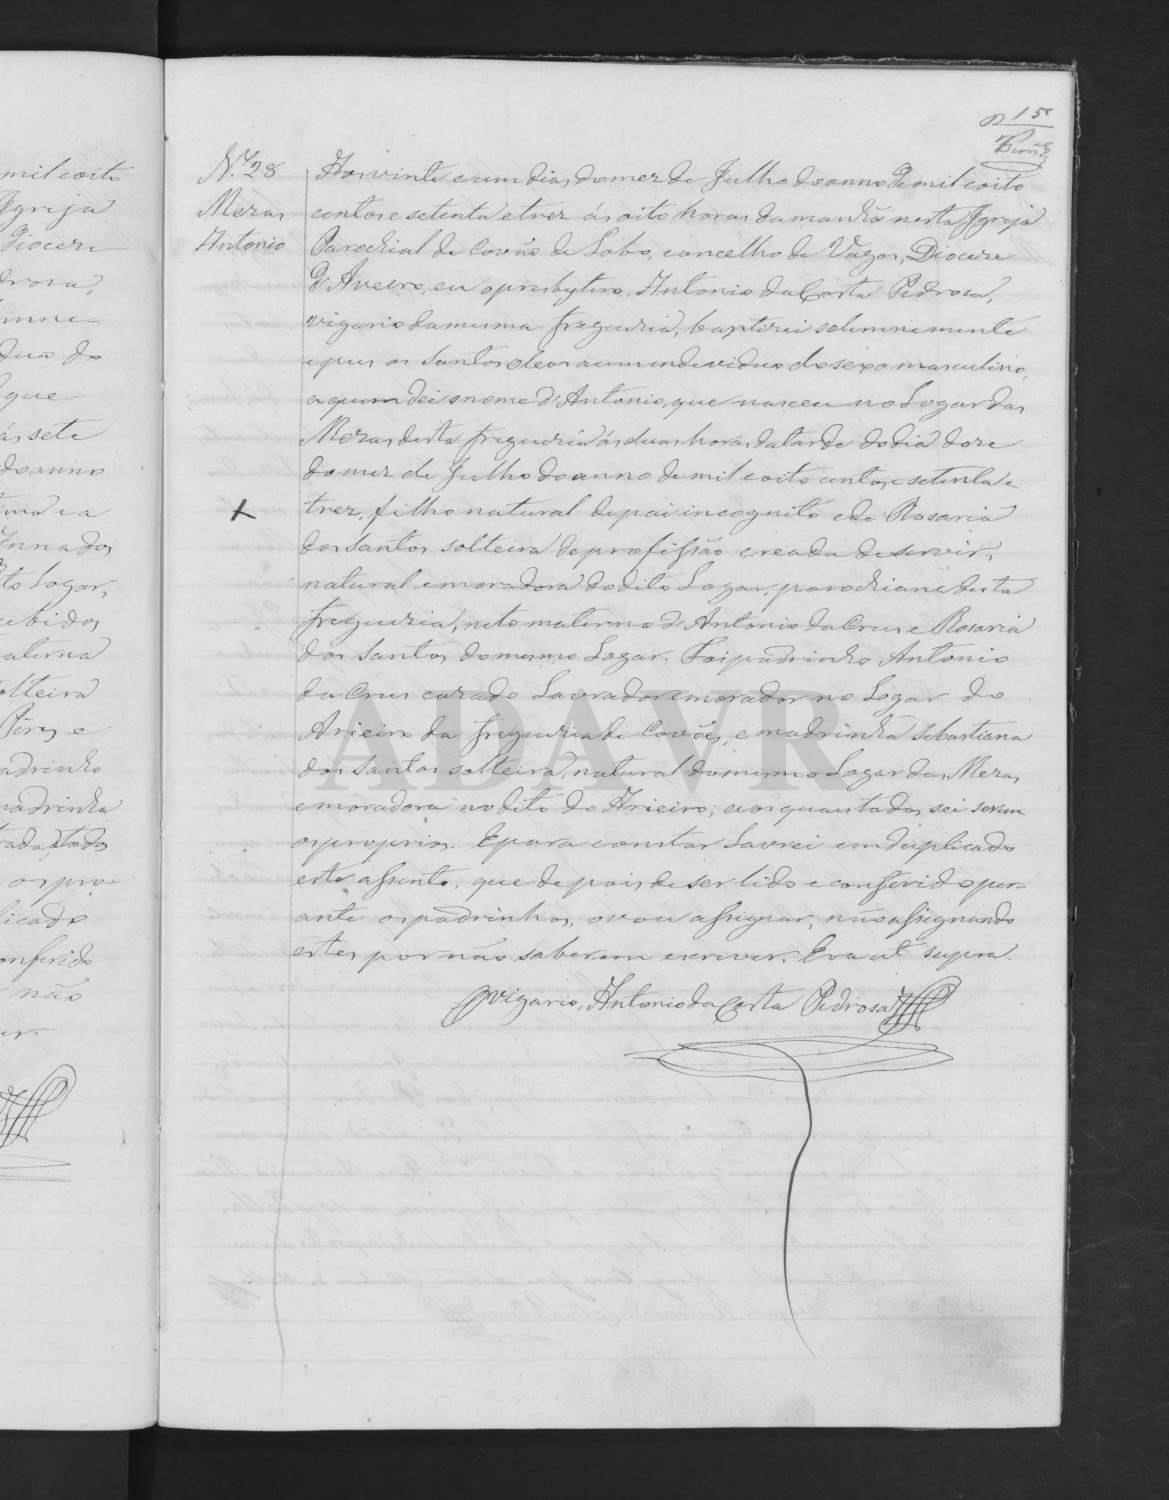 15
N.º 28
Mezas
Antonio
Aos vinte e um dias do mez de Julho do anno de mil e oito
centos e setenta e trez ás oito horas da manhã nesta Igreja
Parochial de Covão de Lobo, concelho de Vagos, Dioceze
d'Aveiro, eu o presbytero, Antonio da Costa Pedrosa,
vigario da mesma freguezia, baptizei solemnemente
e puz os Santos oleos a um individuo do sexo masculino,
a quem dei o nome d'Antonio, que nasceu no Logar das
Mezas desta freguezia ás duas horas da tarde do dia doze
do mez de Julho do anno de mil e oito centos e setenta e
trez, filho natural de pai incognito e de Rosaria
dos Santos solteira de profissão creada de servir,
natural e moradora do dito Logar, parochiana desta
freguezia, neto materno d'Antonio da Cruz e Rosaria
dos Santos do mesmo Logar. Foi padrinho Antonio
da Cruz cazado Lavrador e morador no Logar do
Arieiro da freguezia de Covões, e madrinha Sebastiana
dos Santos solteira, natural do mesmo Logar das Mezas
e moradora no dito do Arieiro; os quaes todos sei serem
os proprios. E para constar Lavrei em duplicado
este assento, que depois de ser lido e conferido per-
ante os padrinhos, o vou assignar, não assignando
estes por não saberem escriver. Era ut supra.
O vigario, Antonio da Costa Pedrosa
ADAVR
mil e oito
Igreja
Dioceze
drosa,
que
ás sete
do anno
dito Logar,
cebidos
aterna
olteira
Pires e
adrinho
adrinha
todos
os pro-
licado
onferido
não